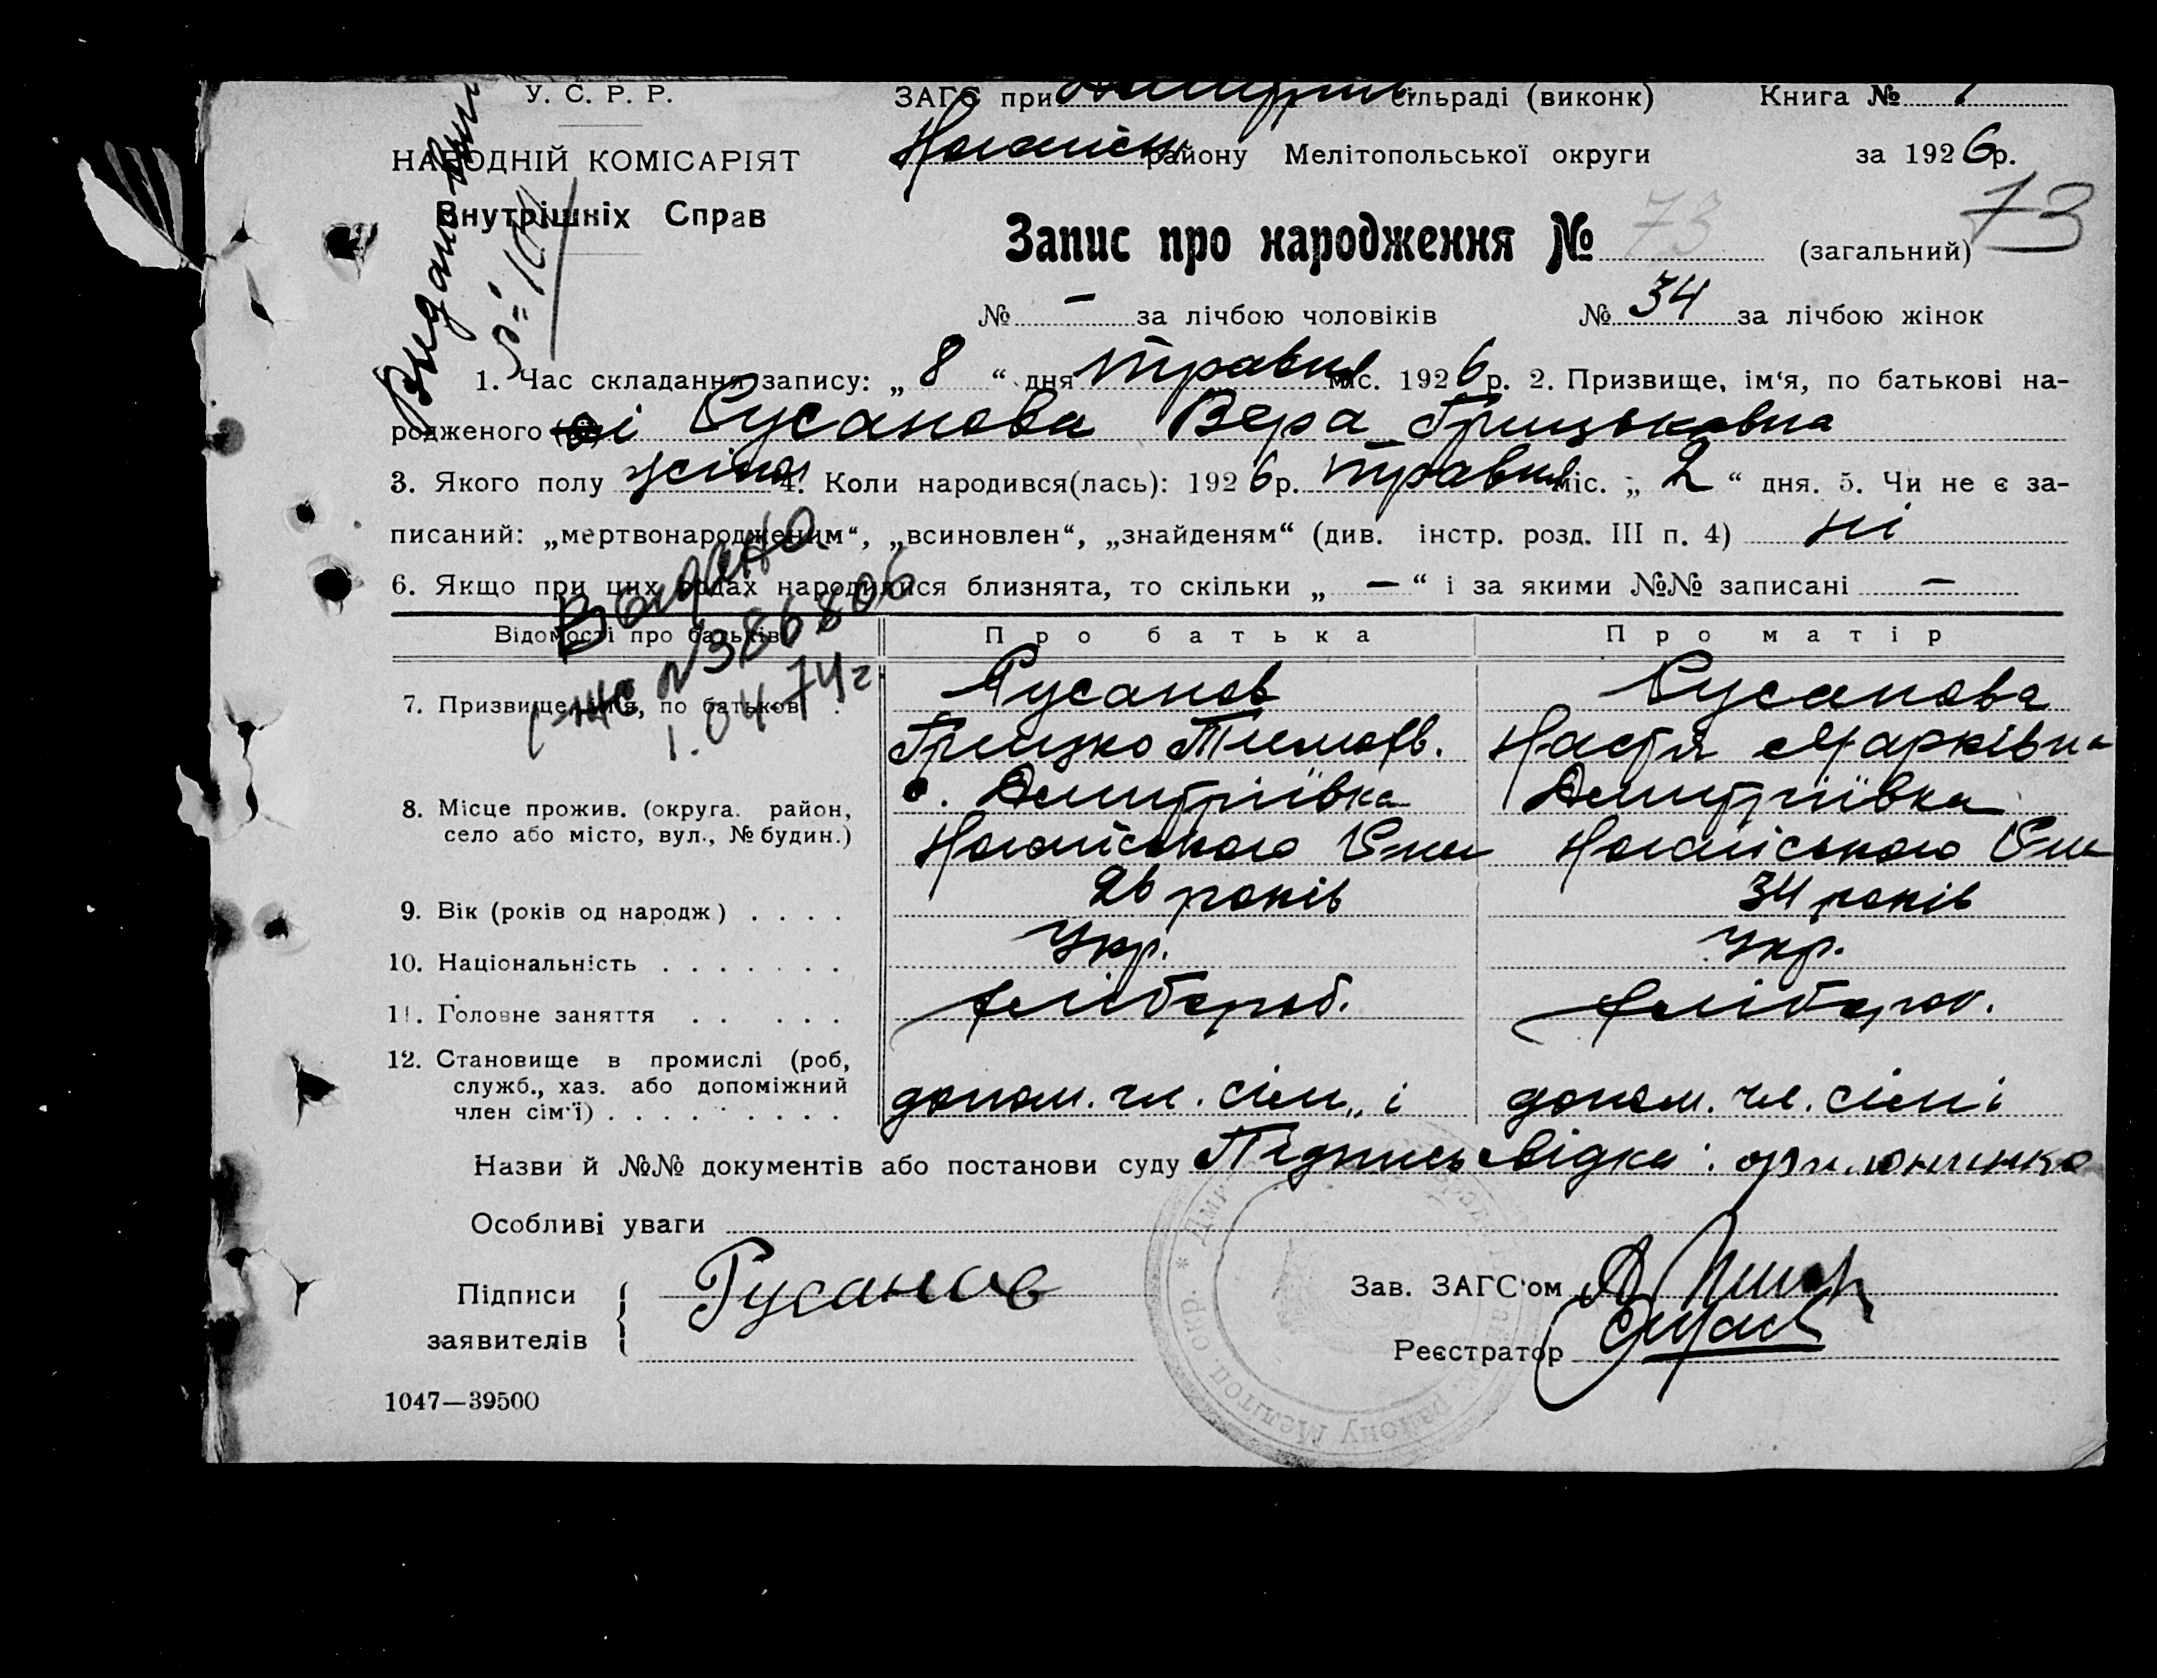 У. С. Р. Р.
НАРОДНІЙ КОМІСАРІЯТ
Внутрішніх Справ
ЗАГС при сільраді (виконк) Книга №
району Мелітопольської округи за 1926р.
Запис про народження № 73 (загальний) 73
№ — за лічбою чоловіків № 34 за лічбою жінок
1. Час складання запису: „ 8 “ дня травня міс. 1926 р. 2. Призвище, ім‘я, по батькові на-
родженого і Русанова Вера Грицьковна
3. Якого полу жіноч 4. Коли народився(лась): 1926р. травня міс. „ 2 “ дня. 5. Чи не є за-
писаний: „мертвонародженим“, „всиновлен“, „знайденям“ (див. інстр. розд. III п. 4) ні
6. Якщо при цих родах народилися близнята, то скільки „ — “ і за якими №№ записані —
Видано
Выдано
№386806
1.04.74г
Відомості про батьків Про батька Про матір
7. Призвище, ім‘я, по батькові . Русанов Русанова
Грицко Тимофв. Настя Марківна
8. Місце прожив. (округа. район, с. Дмитріївка Дмитріївка
село або місто, вул., № будин.) Ногайського Ногайського
9. Вік (років од народж) . . . . 26 років 34 років
10. Національність . . . . . . . Укр. Укр.
11. Головне заняття . . . . . хлібороб. хлібороб.
12. Становище в промислі (роб,
служб., хаз. або допоміжний
член сім‘ї) . . . . . . . . . допом. чл. сім„і допом. чл. сімі
Назви й №№ документів або постанови суду Підпись свідка:
Особливі уваги
Підписи
заявителів
Русанов
Зав. ЗАГС‘ом
Реєстратор
району Мелітоп. окр. *
1047—39500